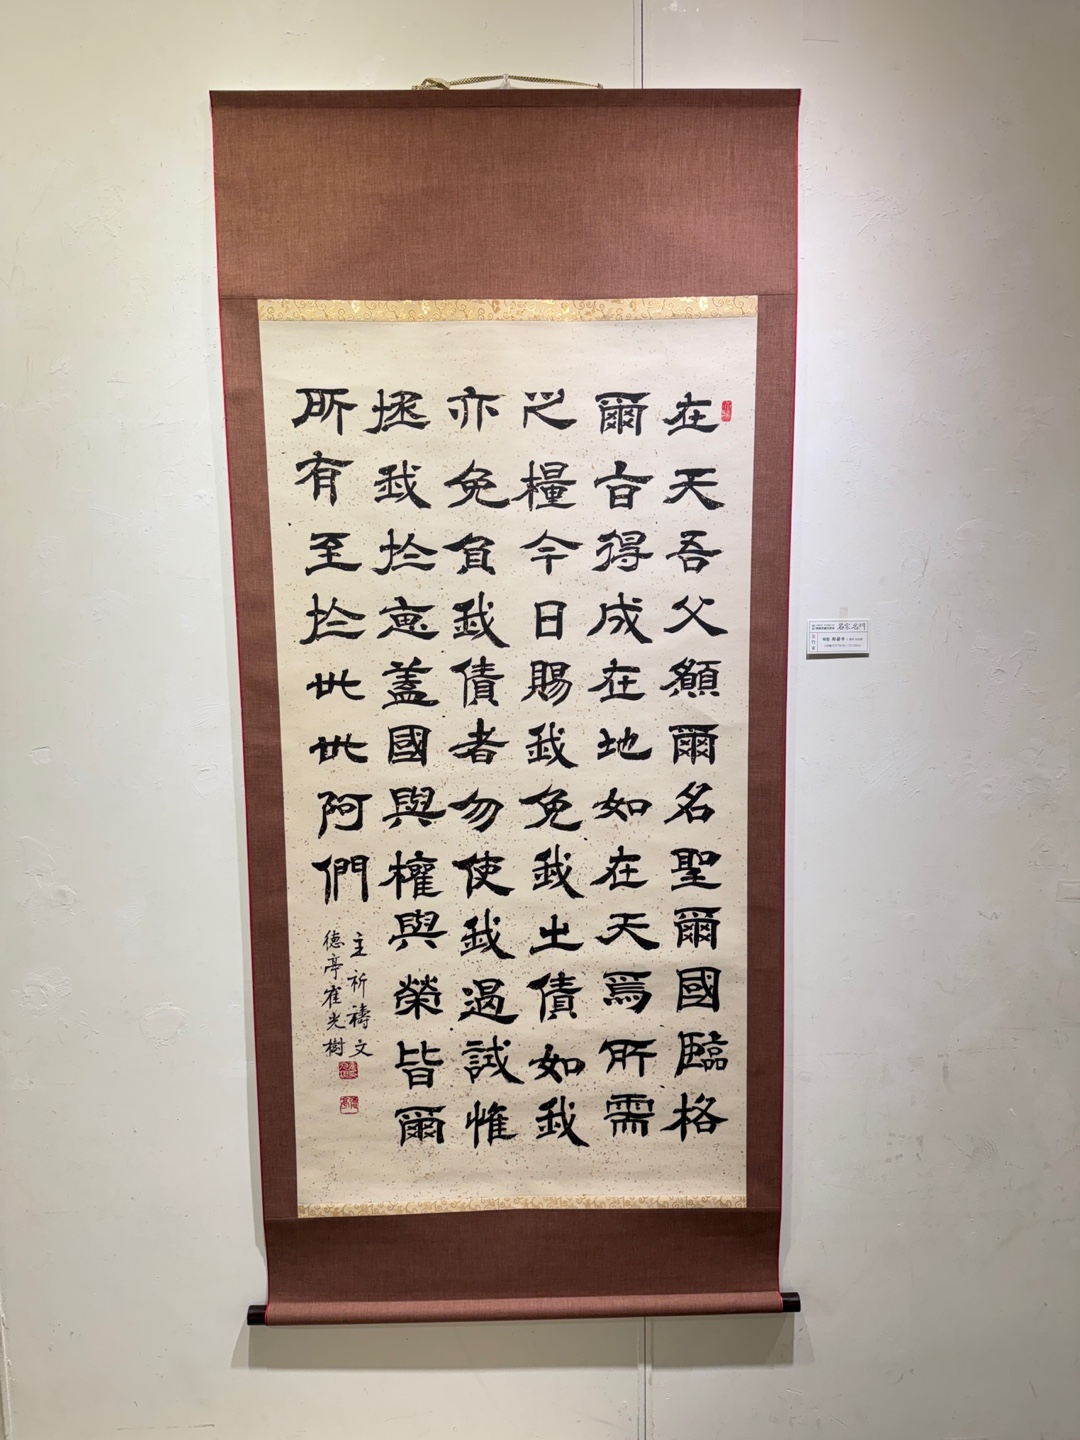 在天吾父願爾名聖爾國臨格
爾旨得成在地如在天焉所需
之糧今日賜我免我之債如我
亦免負我債者勿使我遇試惟
拯我於惡蓋國與權與榮皆爾
所有至於世世阿們
主祈禱文
德亭崔光樹
名家名門